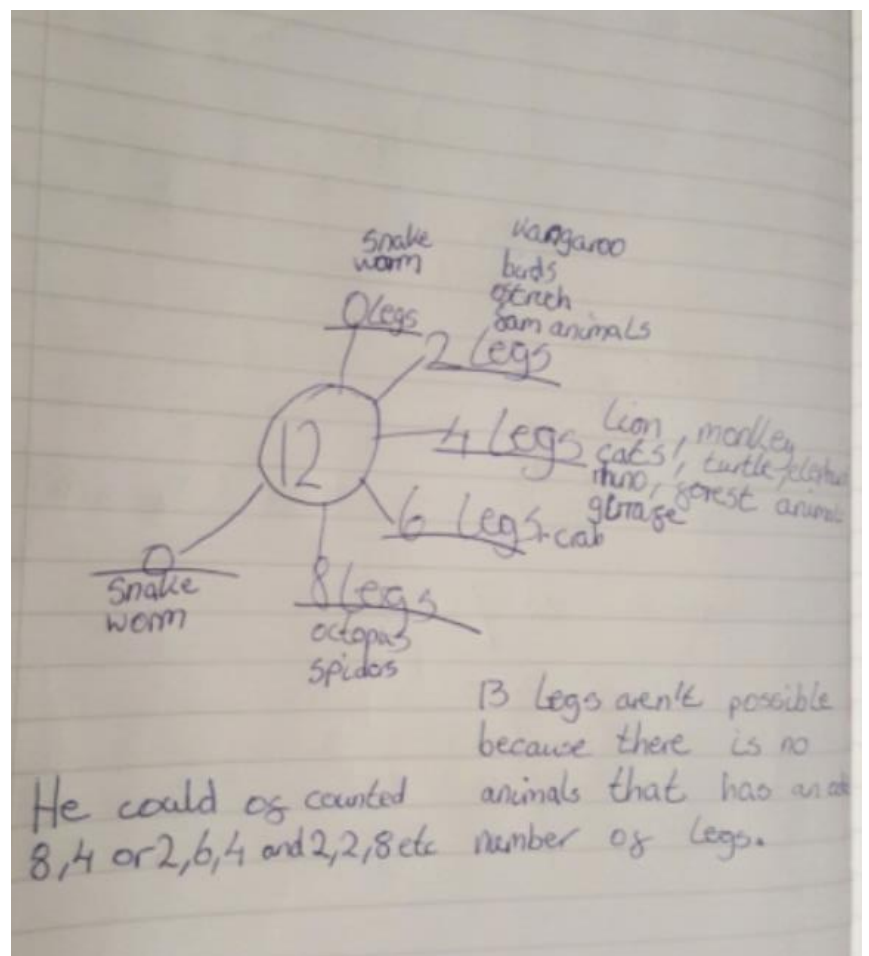 snake
worm
0 Legs
Kangaroo
birds
ostrich
farm animals
2 Legs
12
4 Legs
Lion, monkey
cats, turtle,
rhino, forest animal
girrafe
6 Legs.
crab
0
Snake
worm
8 Legs
octopas
spidos
13 Legs aren't possible
because there is no
animals that has an odd
number of Legs.
He could of counted
8,4 or 2,6,4 and 2,2,8 etc